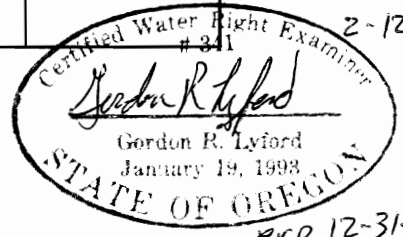 2-12
Certified Water Right Examiner
# 341
Gordon R Lyford
Gordon R. Lyford
January 19, 1993
STATE OF OREGON
12-31-